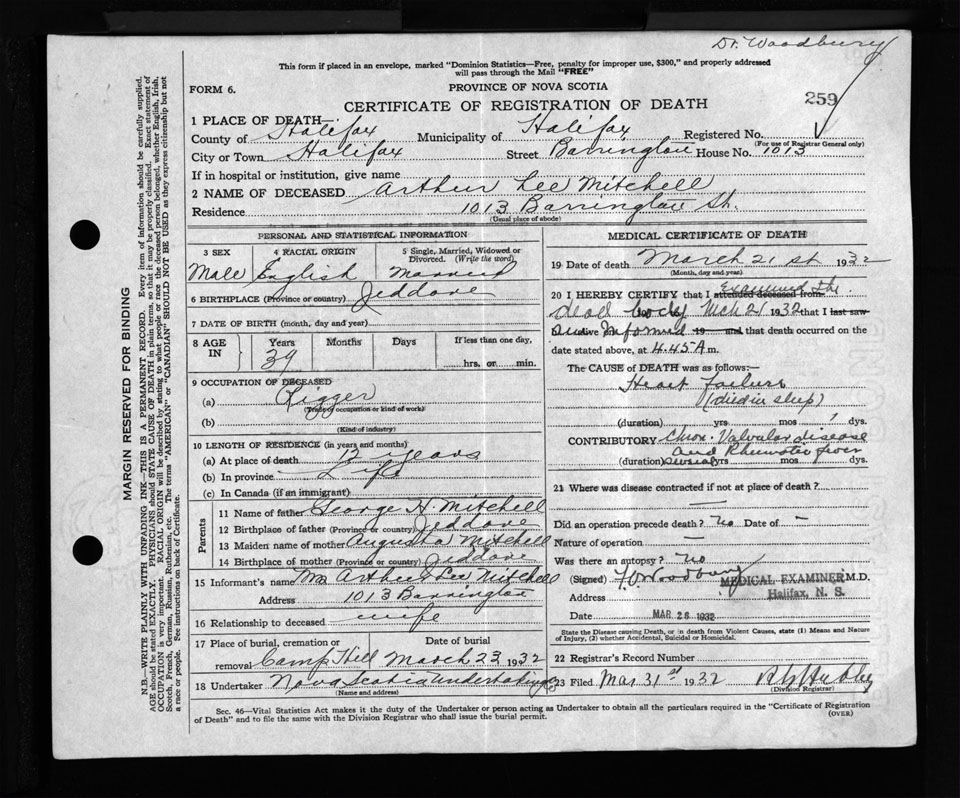 Dr. Woodbury
This form if placed in an envelope, marked "Dominion Statistics—Free, penalty for improper use, $300," and properly addressed
will pass through the Mail "FREE"
FORM 6.
PROVINCE OF NOVA SCOTIA
259
CERTIFICATE OF REGISTRATION OF DEATH
1 PLACE OF DEATH—
County of Halifax Municipality of Halifax Registered No.
(For use of Registrar General only)
City or Town Halifax Street Barrington House No. 1013
If in hospital or institution, give name
2 NAME OF DECEASED Arthur Lee Mitchell
Residence 1013 Barrington St.
(Usual place of abode)
PERSONAL AND STATISTICAL INFORMATION
3 SEX 4 RACIAL ORIGIN 5 Single, Married, Widowed or
Divorced. (Write the word)
Male English Married
6 BIRTHPLACE (Province or country) Jeddore
7 DATE OF BIRTH (month, day and year)
8 AGE IN Years Months Days If less than one day,
39 hrs. or min.
9 OCCUPATION OF DECEASED
(a) Rigger
(Trade or occupation or kind of work)
(b)
(Kind of industry)
10 LENGTH OF RESIDENCE (in years and months)
(a) At place of death 12 years
(b) In province Life
(c) In Canada (if an immigrant)
Parents
11 Name of father George H. Mitchell
12 Birthplace of father (Province or country) Jeddore
13 Maiden name of mother Augusta Mitchell
14 Birthplace of mother (Province or country) Jeddore
15 Informant's name Mrs Arthur Lee Mitchell
Address 1013 Barrington
16 Relationship to deceased wife
17 Place of burial, cremation or Date of burial
removal Camp Hill March 23 1932
18 Undertaker Nova Scotia Undertaking Co
(Name and address)
MEDICAL CERTIFICATE OF DEATH
19 Date of death March 21 st 1932
(Month, day and year)
20 I HEREBY CERTIFY that I attended deceased from Examined the
dead body Mch 21 1932 that I last saw
alive Informed 19 and that death occurred on the
date stated above, at 4.45 A m.
The CAUSE of DEATH was as follows:—
Heart Failure
(died in sleep)
(duration) yrs mos dys.
CONTRIBUTORY Chron. Valvular disease
and Rheumatic fever
(duration) several yrs mos dys.
21 Where was disease contracted if not at place of death?
Did an operation precede death? No Date of —
Nature of operation —
Was there an autopsy? No
(Signed) Woodbury M.D.
MEDICAL EXAMINER
Halifax, N. S.
Address
Date MAR 26 1932
State the Disease causing Death, or in death from Violent Causes, state (1) Means and Nature
of Injury, (2) whether Accidental, Suicidal or Homicidal.
22 Registrar's Record Number
23 Filed Mar 31st 1932
(Division Registrar)
Sec. 46—Vital Statistics Act makes it the duty of the Undertaker or person acting as Undertaker to obtain all the particulars required in the "Certificate of Registration
of Death" and to file the same with the Division Registrar who shall issue the burial permit.
(OVER)
MARGIN RESERVED FOR BINDING
N.B.—WRITE PLAINLY WITH UNFADING INK—THIS IS A PERMANENT RECORD. Every item of information should be carefully supplied.
AGE should be stated EXACTLY. PHYSICIANS should STATE CAUSE OF DEATH in plain terms, so that it may be properly classified. Exact statement of
OCCUPATION is very important. RACIAL ORIGIN will be described by stating to what people or race the deceased person belonged, whether English, Irish,
Scotch, French, German, Russian, Ruthenian, etc. The terms "AMERICAN" or "CANADIAN" SHOULD NOT BE USED as they express citizenship but not
a race or people. See instructions on back of Certificate.